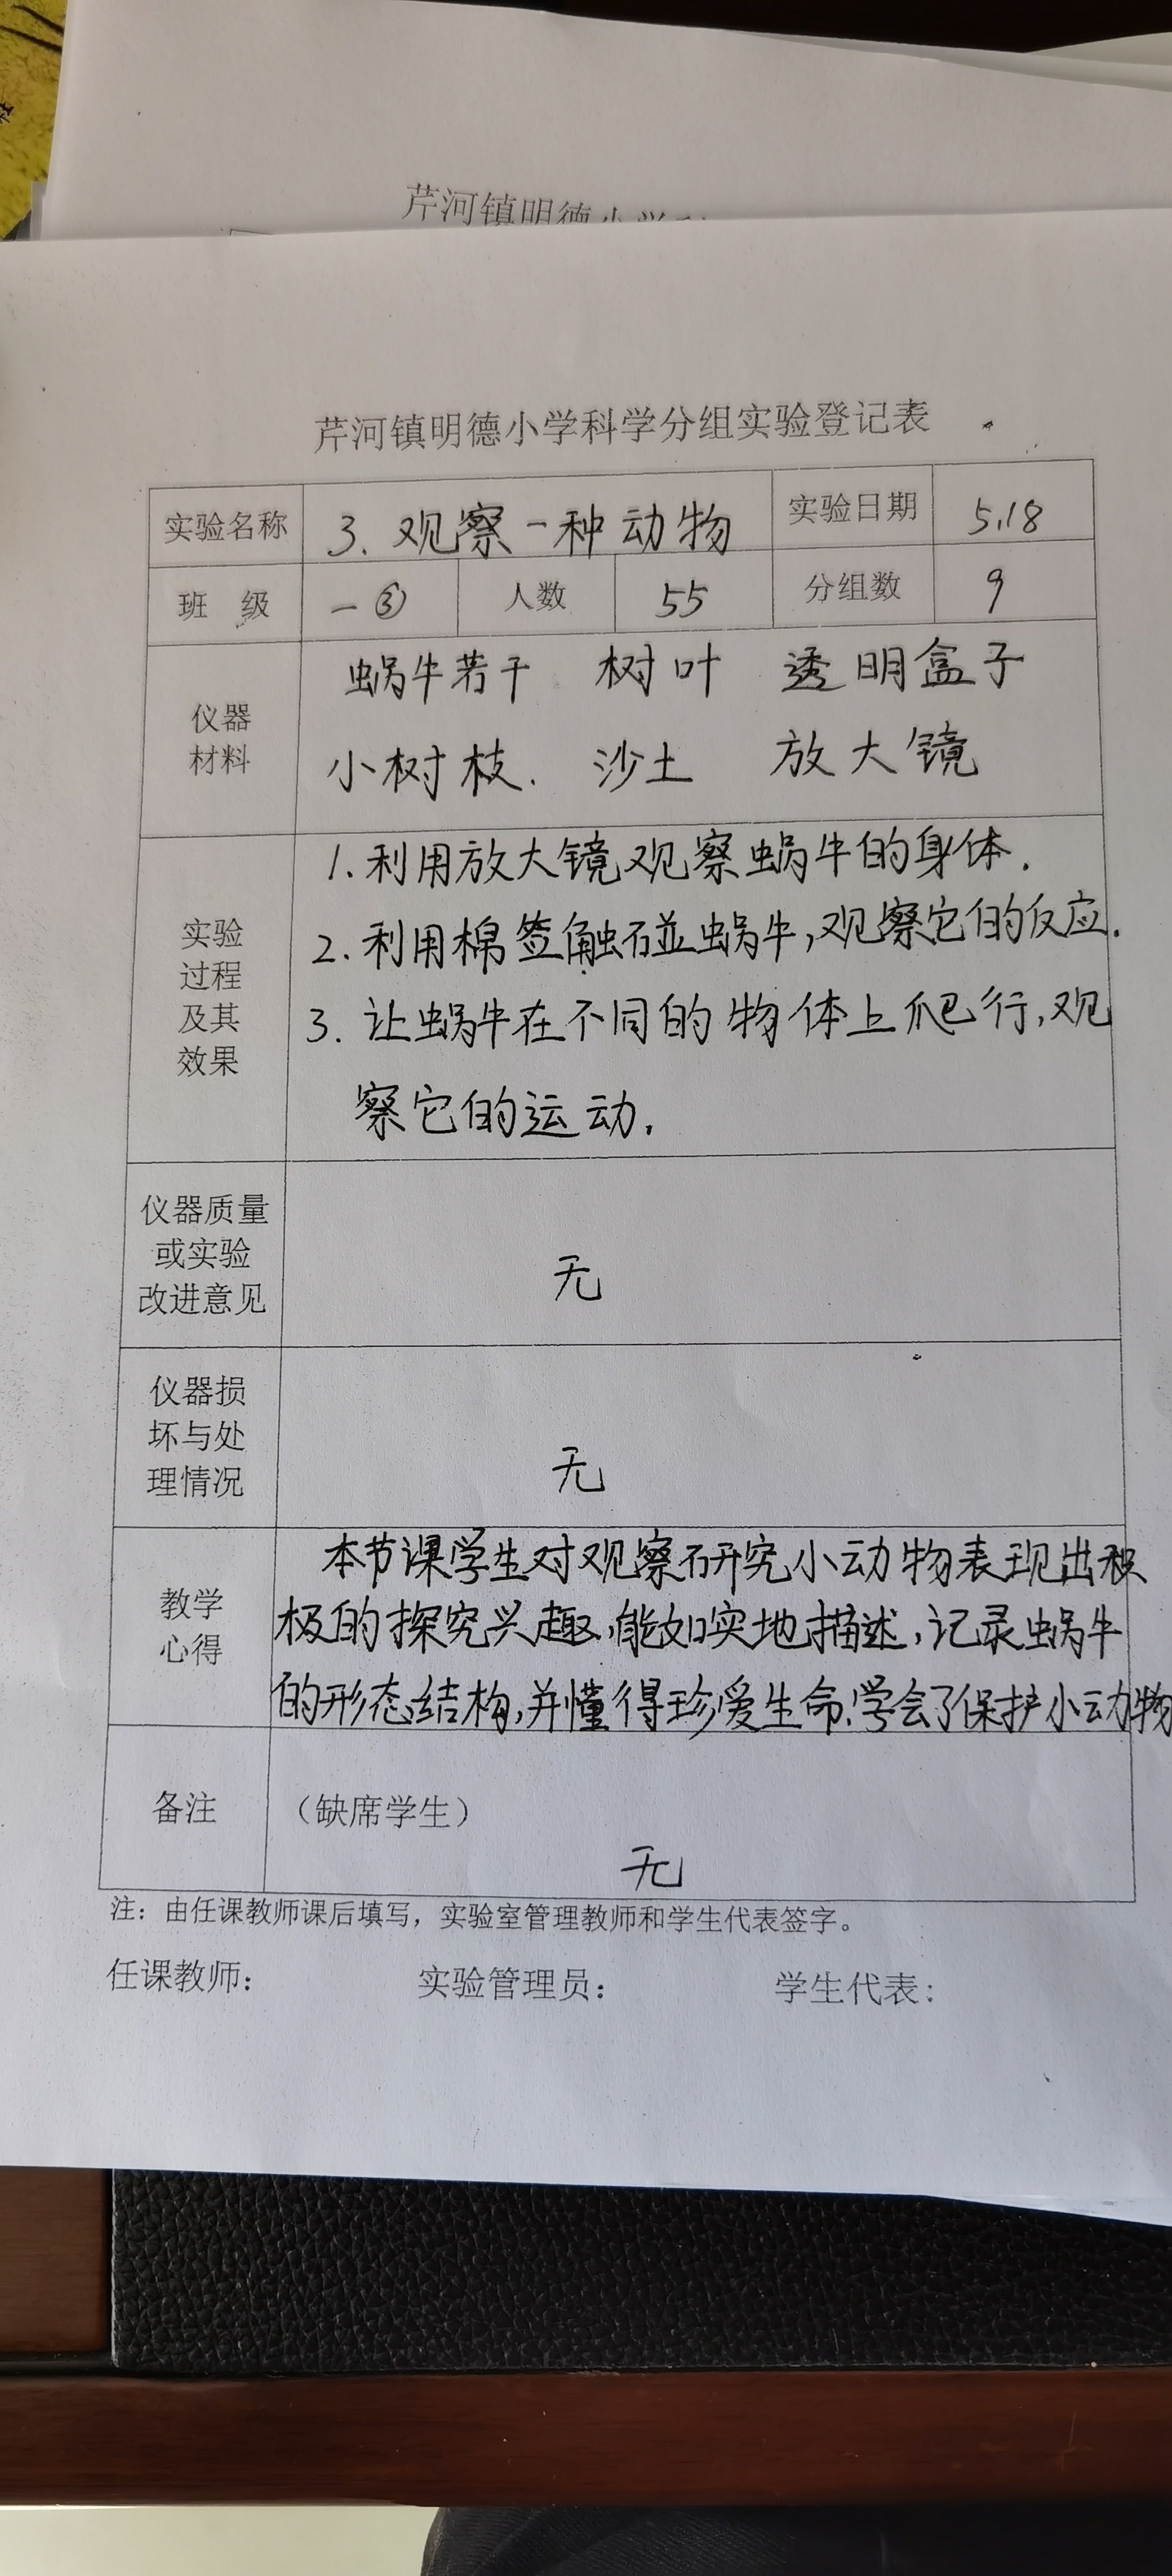 芹河镇明德小学
芹河镇明德小学科学分组实验登记表
实验名称 3. 观察一种动物 实验日期 5.18
班 级 一③ 人数 55 分组数 9
蜗牛若干 树叶 透明盒子
仪器
材料
小树枝. 沙土 放大镜
1.利用放大镜观察蜗牛的身体.
2.利用棉签触碰蜗牛,观察它的反应.
3. 让蜗牛在不同的物体上爬行,观
察它的运动.
实验
过程
及其
效果
仪器质量
或实验
改进意见
无
仪器损
坏与处
理情况
无
本节课学生对观察研究小动物表现出积
极的探究兴趣,能如实地描述,记录蜗牛
的形态结构,并懂得珍爱生命.学会了保护小动物
教学
心得
备注 (缺席学生)
无
注：由任课教师课后填写，实验室管理教师和学生代表签字。
任课教师： 实验管理员： 学生代表：